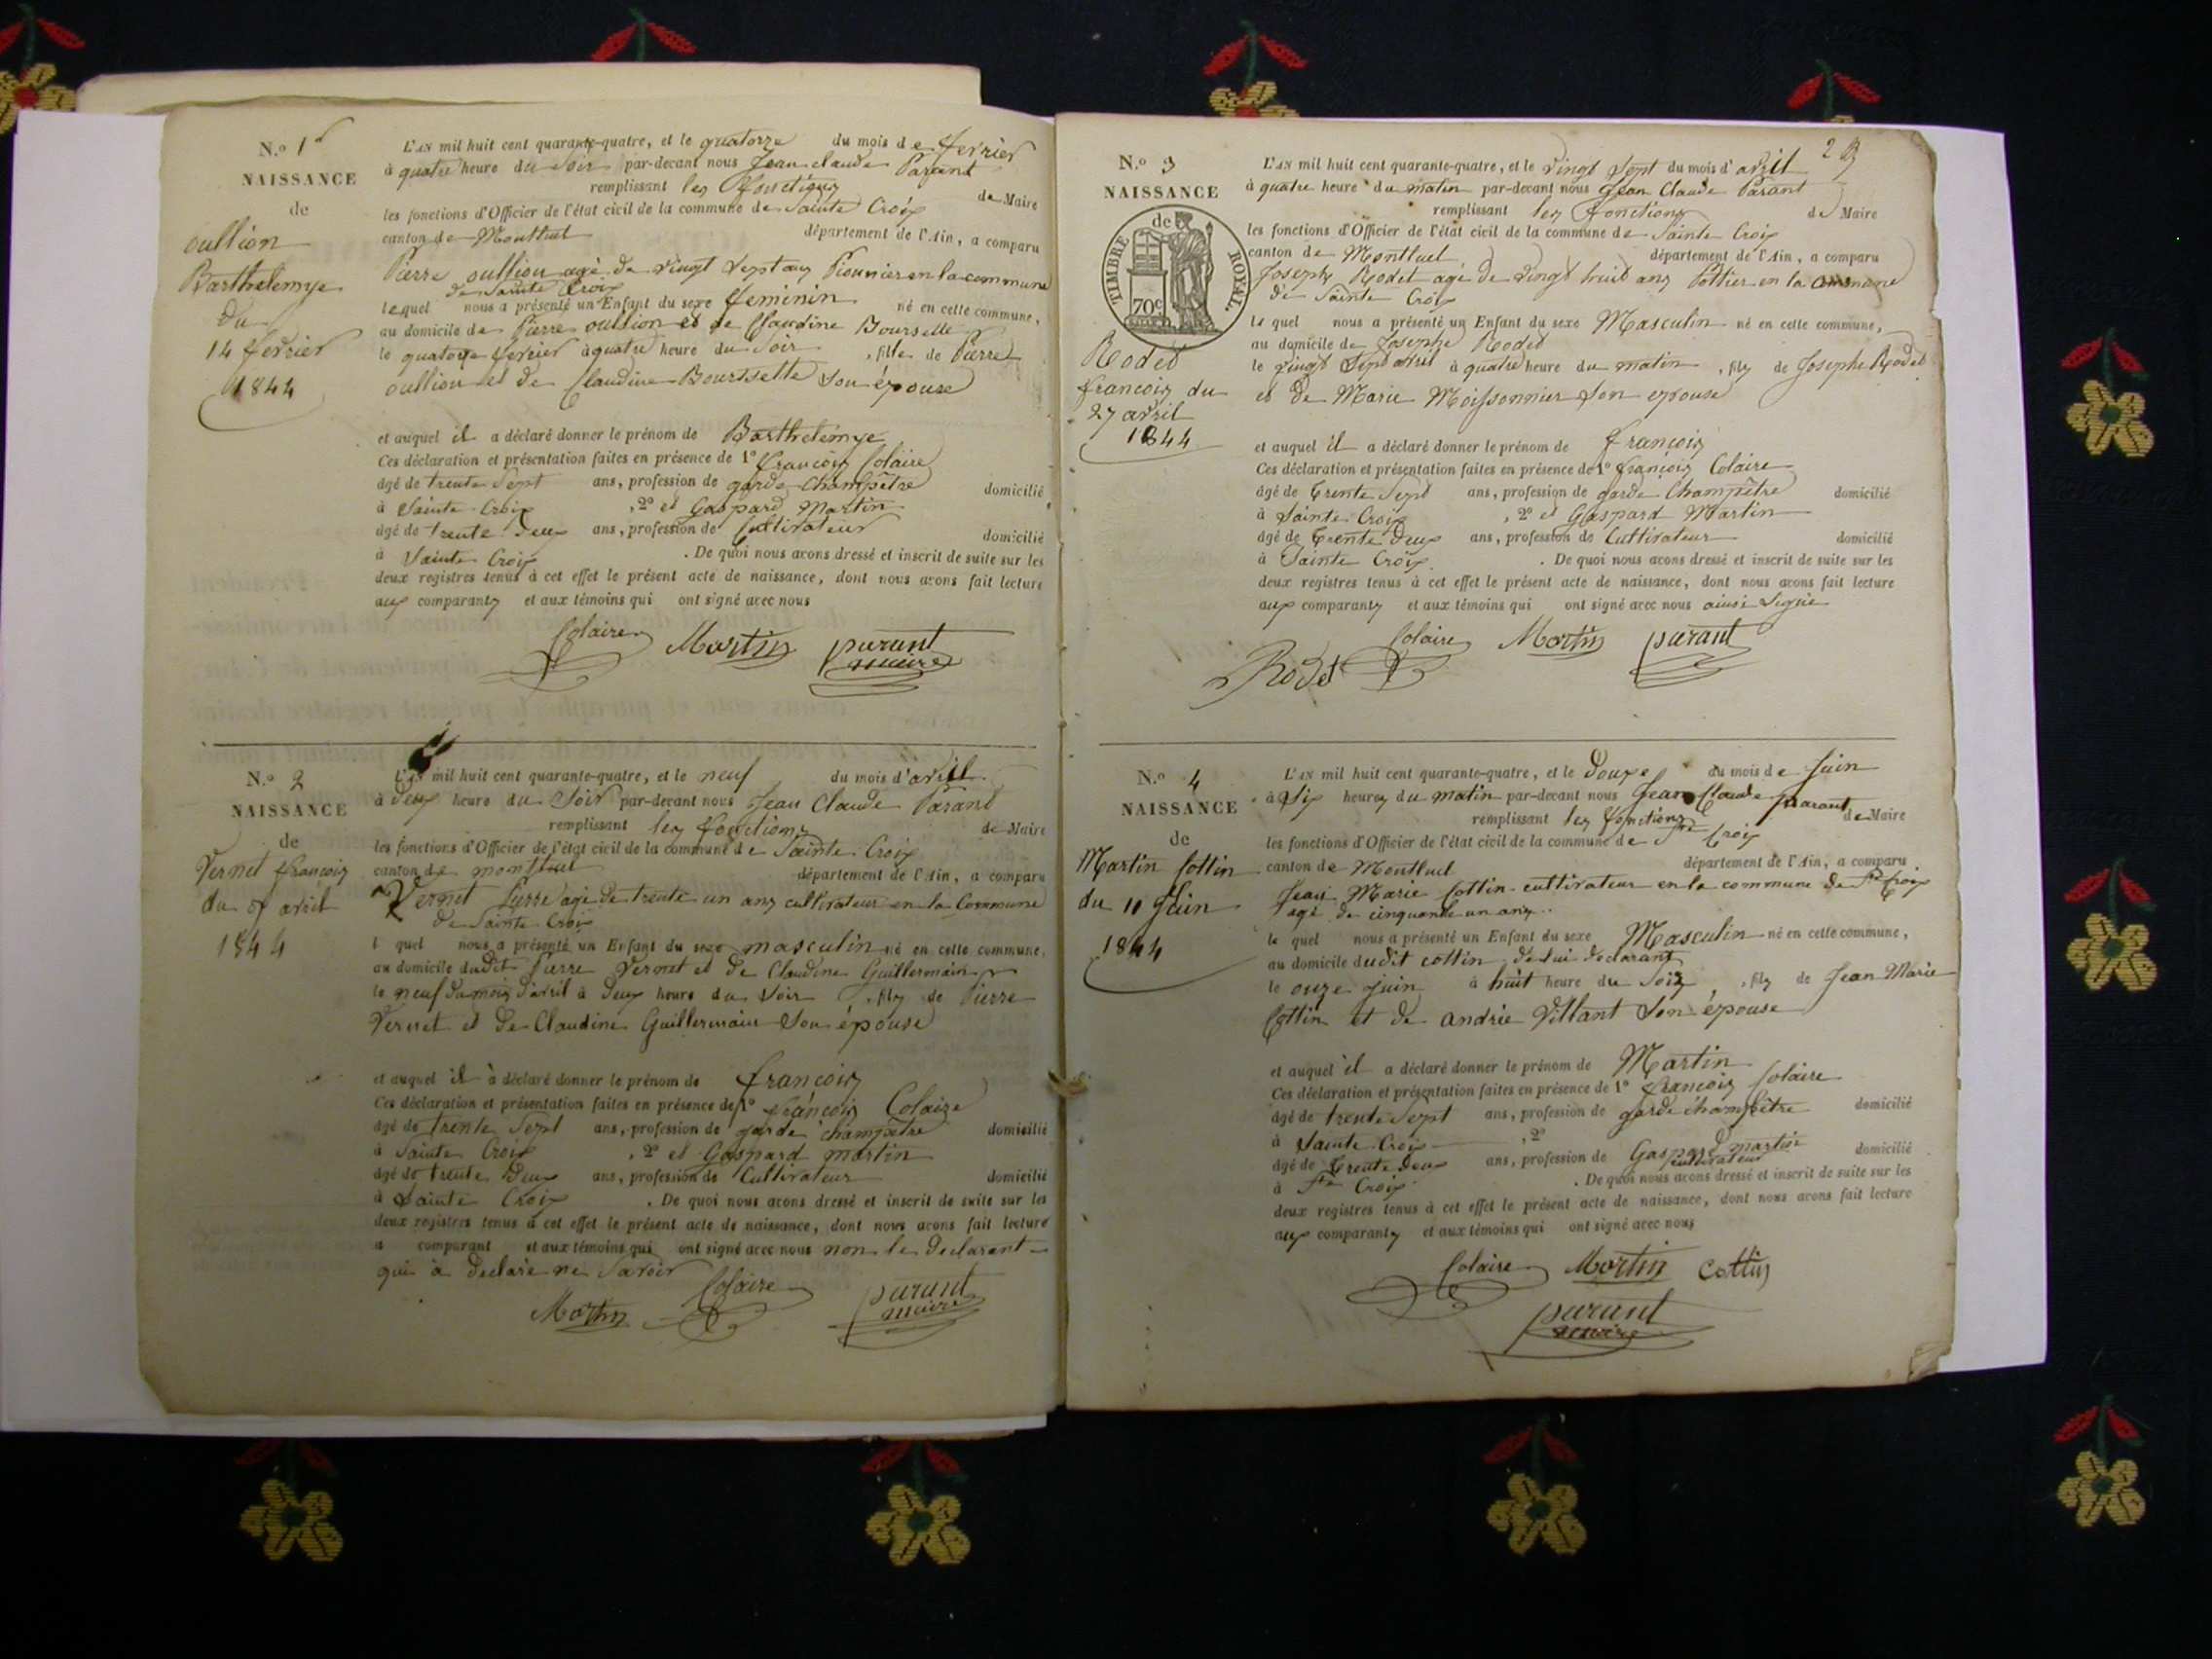 N.o 1er
NAISSANCE
de
oullion
Barthelemye
du
14 fevrier
1844
L'AN mil huit cent quarante-quatre, et le quatorze du mois de fevrier
à quatre heure du soir par-devant nous Jean claude Parant
remplissant les fonctions de Maire
les fonctions d'Officier de l'état civil de la commune de Sainte Croix
canton de Montluel département de l'Ain, a comparu
Pierre oullion agé de vingt sept ans en la commune
de Sainte Croix
lequel nous a présenté un Enfant du sexe feminin né en cette commune,
au domicile de Pierre oullion et de Claudine Bourselle
le quatorze fevrier à quatre heure du soir, fille de Pierre
oullion et de Claudine Bourselle son épouse
et auquel il a déclaré donner le prénom de Barthelemye
Ces déclaration et présentation faites en présence de 1o françois Colaire
âgé de trente sept ans, profession de garde champêtre domicilié
à Sainte Croix, 2o et Gaspard Martin
âgé de trente deux ans, profession de Cultivateur domicilié
à Sainte Croix. De quoi nous avons dressé et inscrit de suite sur les
deux registres tenus à cet effet le présent acte de naissance, dont nous avons fait lecture
aux comparants et aux témoins qui ont signé avec nous
Colaire Martin parant
maire
N.o 2
NAISSANCE
de
Vernet françois
du 9 avril
1844
L'AN mil huit cent quarante-quatre, et le neuf du mois d'avril
à deux heure du Soir par-devant nous Jean Claude Parant
remplissant les fonctions de Maire
les fonctions d'Officier de l'état civil de la commune de Sainte Croix
canton de montluel département de l'Ain, a comparu
Vernet Pierre agé de trente un ans cultivateur en la Commune
de Sainte Croix
l quel nous a présenté un Enfant du sexe masculin né en cette commune,
au domicile dudit Pierre Vernet et de Claudine Guillermain
le neuf du mois d'avril à deux heure du Soir, fils de Pierre
Vernet et de Claudine Guillermain Son épouse
et auquel il à déclaré donner le prénom de françois
Ces déclaration et présentation faites en présence de 1o françois Colaire
âgé de trente Sept ans, profession de garde champetre domicilié
à Sainte Croix, 2o et Gaspard martin
âgé de trente deux ans, profession de Cultivateur domicilié
à Sainte Croix. De quoi nous avons dressé et inscrit de suite sur les
deux registres tenus à cet effet le présent acte de naissance, dont nous avons fait lecture
a comparant et aux témoins qui ont signé avec nous non le declarant
qui à declaré ne Savoir
Martin Colaire parant
maire
2
N.o 3
NAISSANCE
de
TIMBRE ROYAL.
70c
Rodet
françois du
27 avril
1844
L'AN mil huit cent quarante-quatre, et le vingt Sept du mois d'avril
à quatre heure du matin par-devant nous Jean Claude Parant
remplissant les fonctions de Maire
les fonctions d'Officier de l'état civil de la commune de Sainte Croix
canton de Montluel département de l'Ain, a comparu
Josephe Rodet agé de vingt huit ans Pottier en la commune
de Sainte Croix
le quel nous a présenté un Enfant du sexe Masculin né en cette commune,
au domicile de Josephe Rodet
le vingt Sept avril à quatre heure du matin, fils de Josephe Rodet
et de Marie Moissonnier Son epouse
et auquel il a déclaré donner le prénom de françois
Ces déclaration et présentation faites en présence de 1o françois Colaire
âgé de trente Sept ans, profession de garde Champêtre domicilié
à Sainte Croix, 2o et Gaspard Martin
âgé de trente deux ans, profession de Cultivateur domicilié
à Sainte Croix. De quoi nous avons dressé et inscrit de suite sur les
deux registres tenus à cet effet le présent acte de naissance, dont nous avons fait lecture
aux comparants et aux témoins qui ont signé avec nous ainsi Signé
Colaire Martin parant
Rodet
N.o 4
NAISSANCE
de
Martin Cottin
du 11 Juin
1844
L'AN mil huit cent quarante-quatre, et le Douze du mois de Juin
à Six heures du matin par-devant nous Jean Claude parant
remplissant les fonctions de Maire
les fonctions d'Officier de l'état civil de la commune de Ste Croix
canton de Montluel département de l'Ain, a comparu
Jean Marie Cottin cultivateur en la commune de Ste Croix
agé de cinquante un ans
le quel nous a présenté un Enfant du sexe Masculin né en cette commune,
au domicile dudit cottin de lui declarant
le onze juin à huit heure du Soir, fils de Jean Marie
Cottin et de andrée Villant Son épouse
et auquel il a déclaré donner le prénom de Martin
Ces déclaration et présentation faites en présence de 1o françois Colaire
âgé de trente Sept ans, profession de garde champêtre domicilié
à Sainte Croix, 2o
âgé de trente deux ans, profession de Gaspard martin cultivateur domicilié
à Ste Croix. De quoi nous avons dressé et inscrit de suite sur les
deux registres tenus à cet effet le présent acte de naissance, dont nous avons fait lecture
aux comparants et aux témoins qui ont signé avec nous
Colaire Martin Cottin
parant
maire